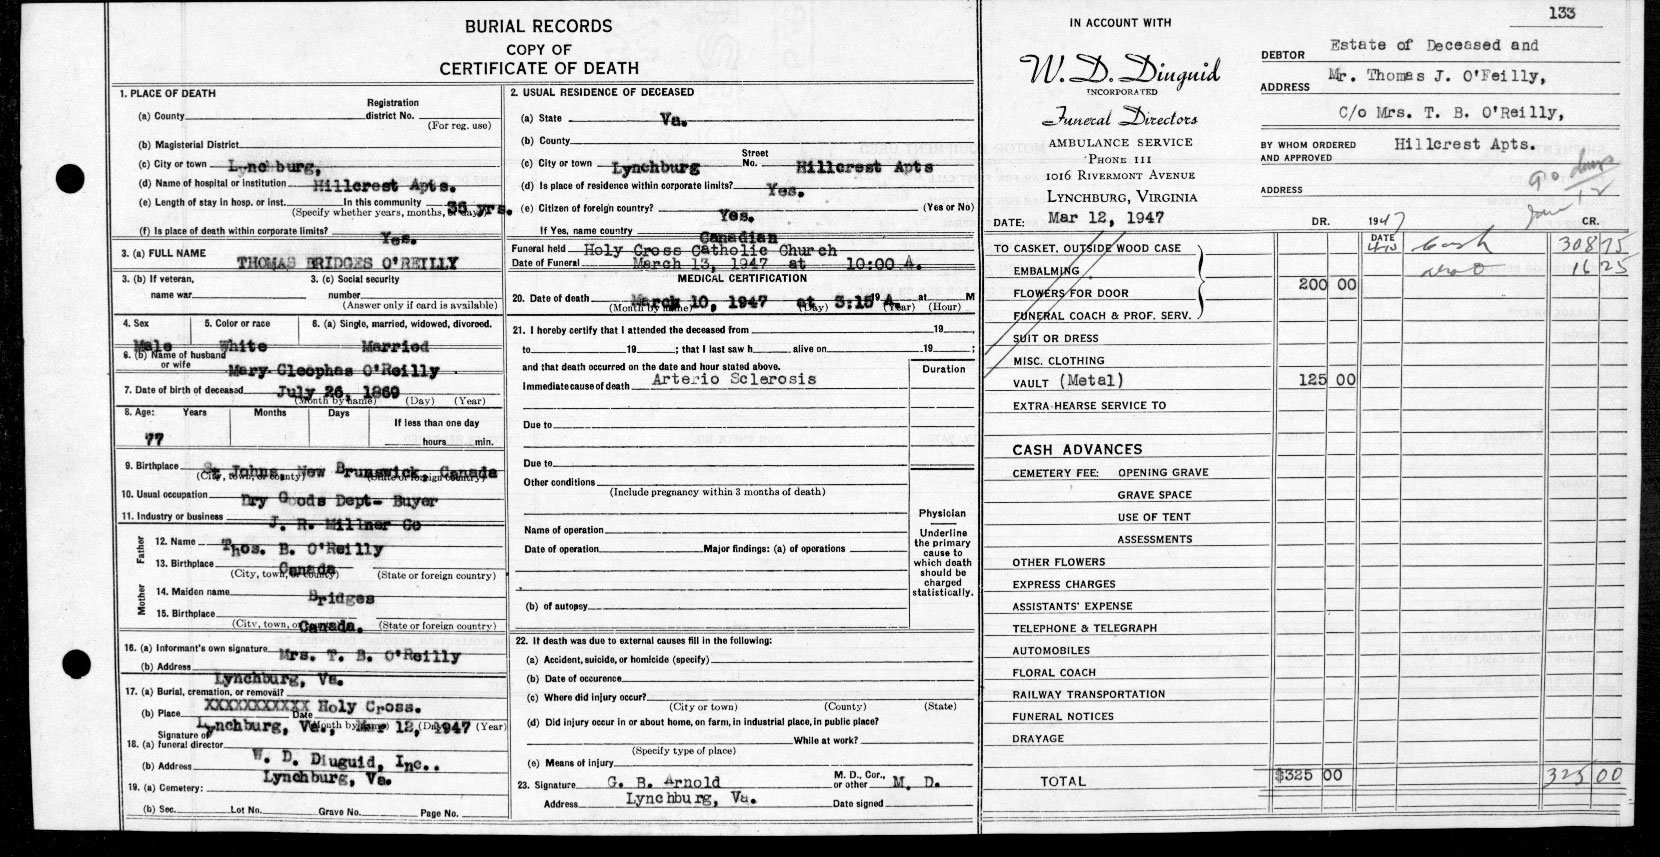 BURIAL RECORDS
COPY OF
CERTIFICATE OF DEATH
1. PLACE OF DEATH
(a) County
Registration district No.
(For reg. use)
(b) Magisterial District
(c) City or town Lynchburg,
(d) Name of hospital or institution Hillcrest Apts.
(e) Length of stay in hosp. or inst. In this community 35 yrs.
(Specify whether years, months, or days)
(f) Is place of death within corporate limits? Yes.
3. (a) FULL NAME THOMAS BRIDGES O'REILLY
3. (b) If veteran, name war
3. (c) Social security number
(Answer only if card is available)
4. Sex Male
5. Color or race White
6. (a) Single, married, widowed, divorced. Married
6. (b) Name of husband or wife Mary Cleophas O'Reilly
7. Date of birth of deceased July 26, 1869
(Month by name) (Day) (Year)
8. Age: Years Months Days If less than one day
77 hours min.
9. Birthplace St Johns, New Brunswick, Canada
(City, town, or county) (State or foreign country)
10. Usual occupation Dry Goods Dept- Buyer
11. Industry or business J. R. Millner Co
Father
12. Name Thos. B. O'Reilly
13. Birthplace Canada
(City, town, or county) (State or foreign country)
Mother
14. Maiden name Bridges
15. Birthplace Canada.
(City, town, or county) (State or foreign country)
16. (a) Informant's own signature Mrs. T. B. O'Reilly
(b) Address Lynchburg, Va.
17. (a) Burial, cremation, or removal?
(b) Place XXXXXXXXXXX Holy Cross.
Date
Lynchburg, Va., Mar 12, 1947
(Month by name) (Day) (Year)
18. (a) Signature of funeral director W. D. Diuguid, Inc..
(b) Address Lynchburg, Va.
19. (a) Cemetery:
(b) Sec. Lot No. Grave No. Page No.
2. USUAL RESIDENCE OF DECEASED
(a) State Va.
(b) County
(c) City or town Lynchburg Street No. Hillcrest Apts
(d) Is place of residence within corporate limits? Yes.
(e) Citizen of foreign country? Yes. (Yes or No)
If Yes, name country Canadian
Funeral held Holy Cross Catholic Church
Date of Funeral March 13, 1947 at 10:00 A.
MEDICAL CERTIFICATION
20. Date of death March 10, 1947 at 3:15 A. 19 at M
(Month by name) (Day) (Year) (Hour)
21. I hereby certify that I attended the deceased from 19 ,
to 19 ; that I last saw h alive on 19 ;
and that death occurred on the date and hour stated above.
Immediate cause of death Arterio Sclerosis
Duration
Due to
Due to
Other conditions
(Include pregnancy within 3 months of death)
Name of operation
Date of operation Major findings: (a) of operations
(b) of autopsy
Physician
Underline the primary cause to which death should be charged statistically.
22. If death was due to external causes fill in the following:
(a) Accident, suicide, or homicide (specify)
(b) Date of occurence
(c) Where did injury occur?
(City or town) (County) (State)
(d) Did injury occur in or about home, on farm, in industrial place, in public place?
While at work?
(Specify type of place)
(e) Means of injury
23. Signature G. B. Arnold M. D., Cor., or other M. D.
Address Lynchburg, Va. Date signed
133
IN ACCOUNT WITH
W. D. Diuguid
INCORPORATED
Funeral Directors
AMBULANCE SERVICE
PHONE 111
1016 RIVERMONT AVENUE
LYNCHBURG, VIRGINIA
DATE: Mar 12, 1947
DEBTOR Estate of Deceased and
ADDRESS Mr. Thomas J. O'Feilly,
C/o Mrs. T. B. O'Reilly,
BY WHOM ORDERED AND APPROVED Hillcrest Apts.
ADDRESS
DR. 1947 CR.
DATE
TO CASKET, OUTSIDE WOOD CASE Cash 308 75
EMBALMING 16 25
FLOWERS FOR DOOR 200 00
FUNERAL COACH & PROF. SERV.
SUIT OR DRESS
MISC. CLOTHING
VAULT (Metal) 125 00
EXTRA HEARSE SERVICE TO
CASH ADVANCES
CEMETERY FEE: OPENING GRAVE
GRAVE SPACE
USE OF TENT
ASSESSMENTS
OTHER FLOWERS
EXPRESS CHARGES
ASSISTANTS' EXPENSE
TELEPHONE & TELEGRAPH
AUTOMOBILES
FLORAL COACH
RAILWAY TRANSPORTATION
FUNERAL NOTICES
DRAYAGE
TOTAL $325 00 325 00